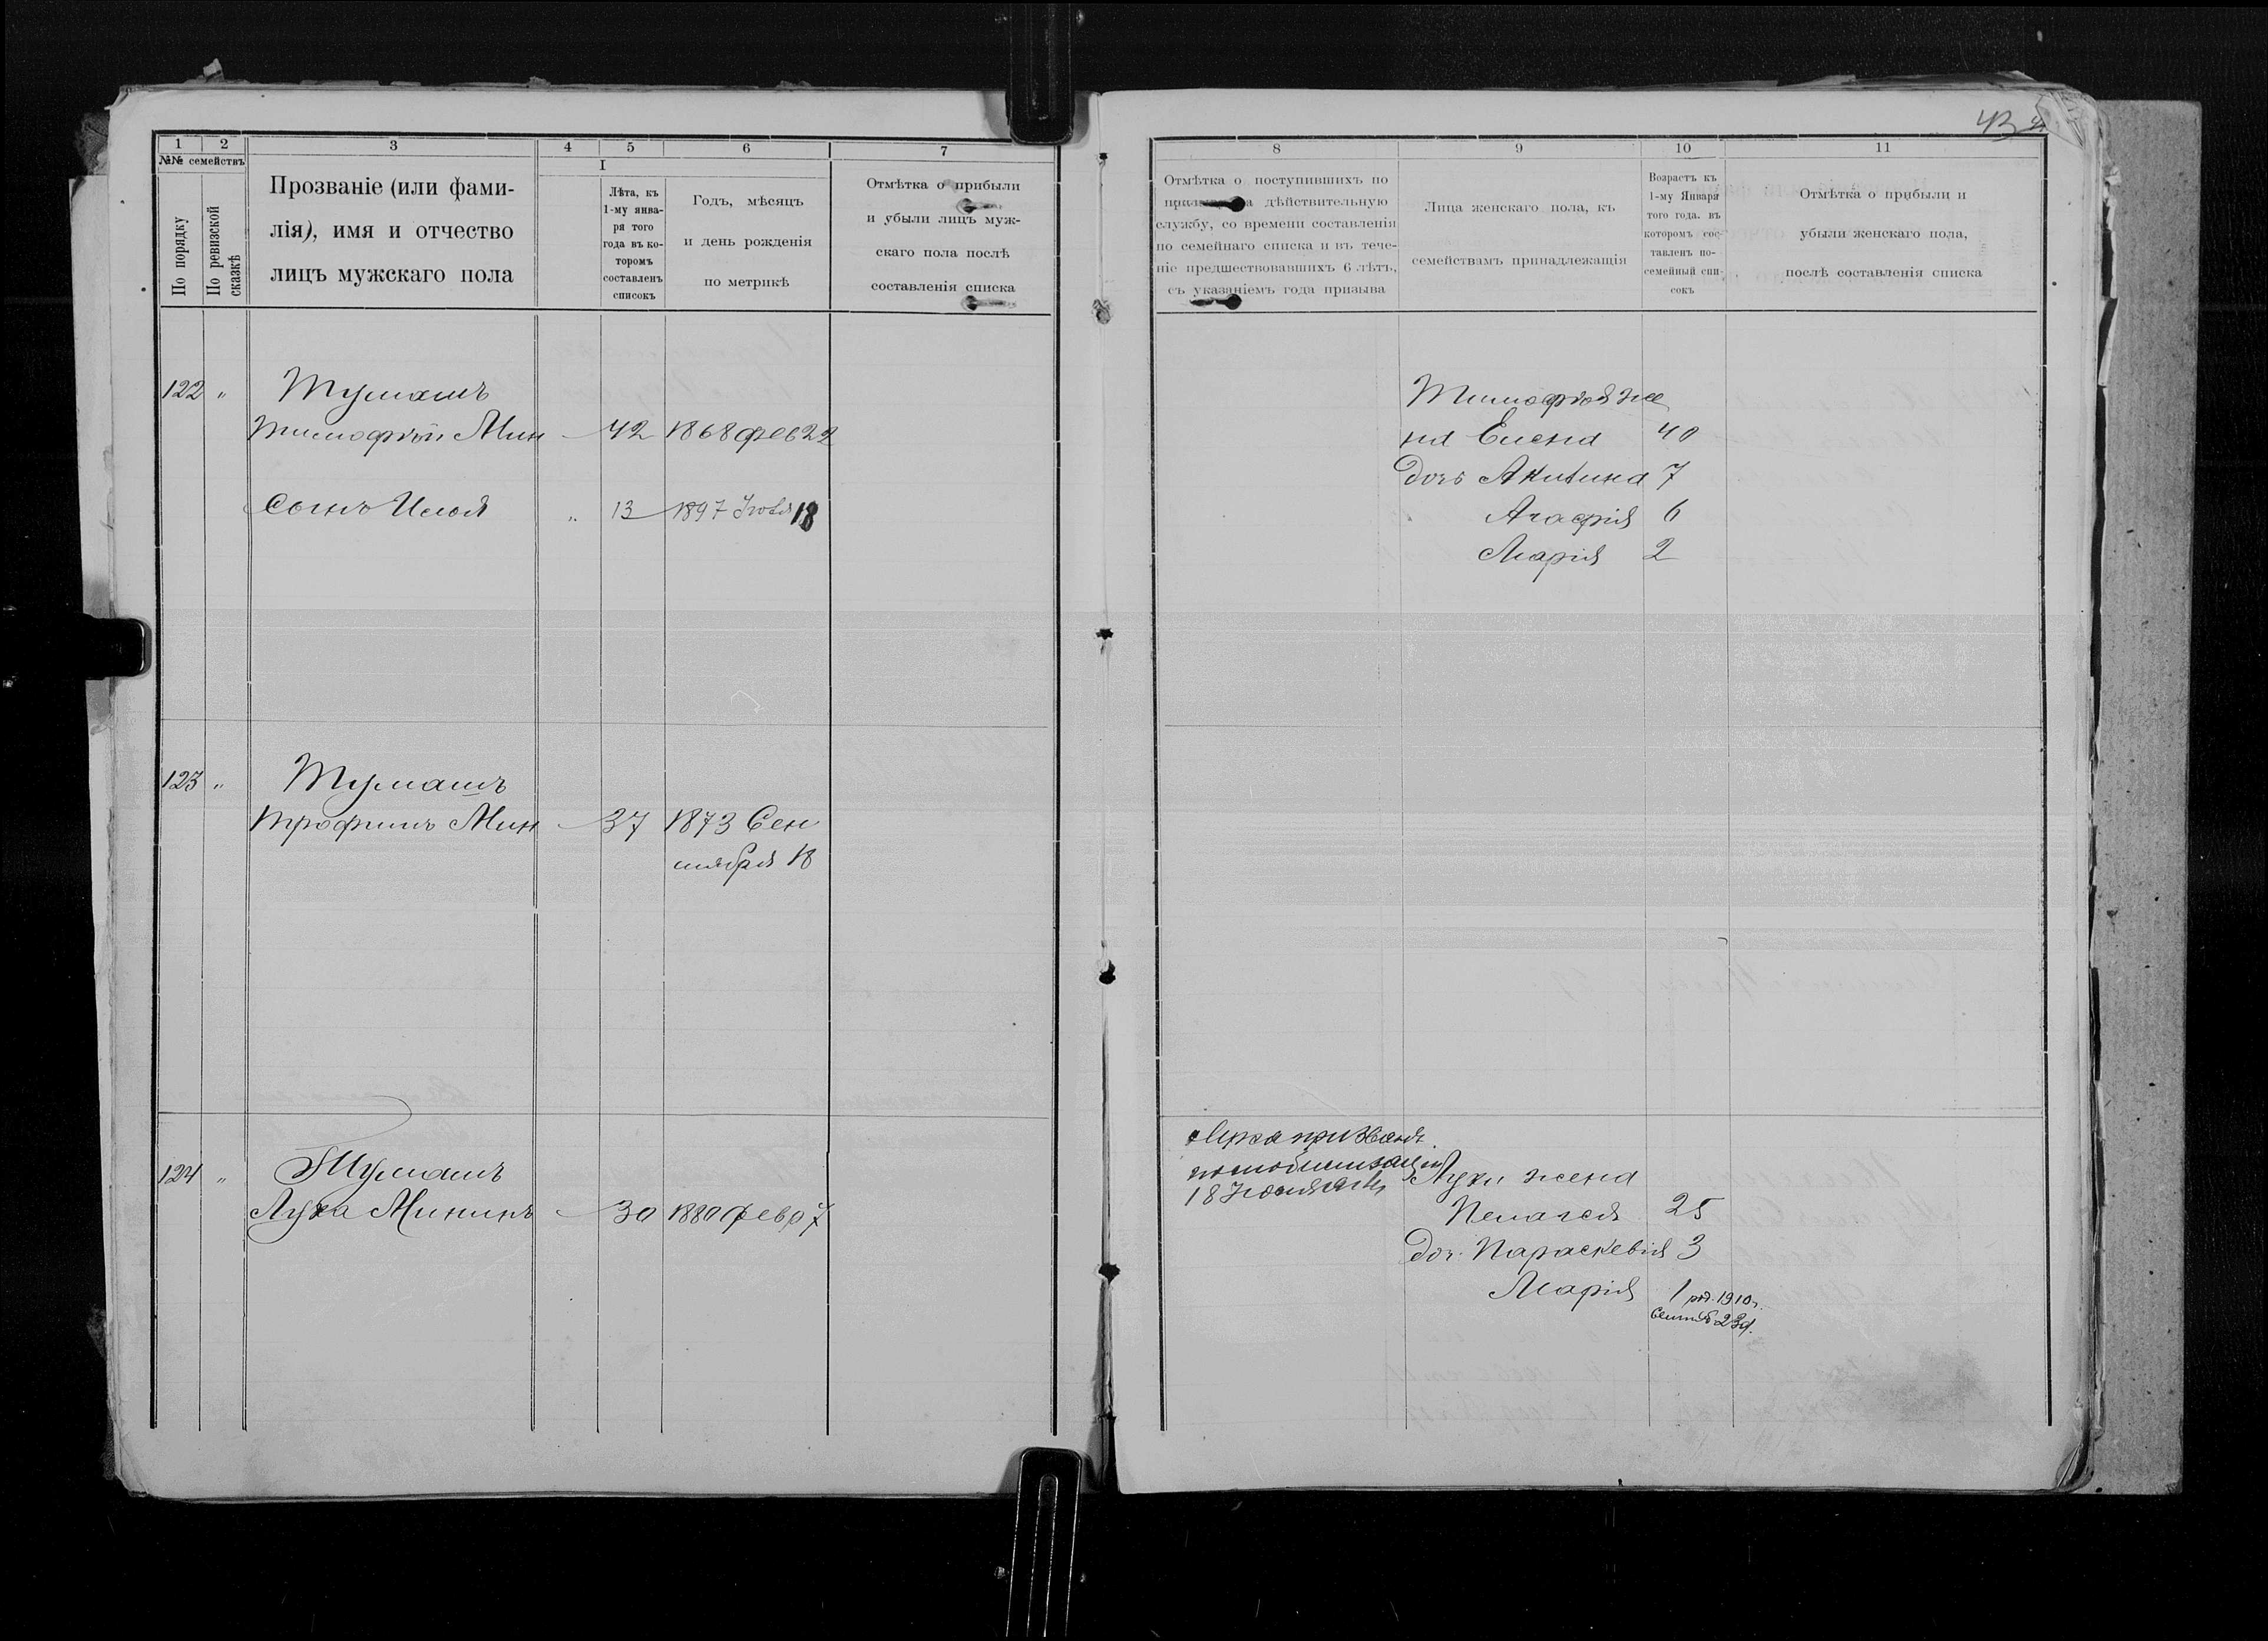 1 2 3 4 5 6 7
№№ семействъ
По порядку
По ревизской сказкѣ
Прозваніе (или фами-
лія), имя и отчество
лицъ мужскаго пола
I
Лѣта, къ
1-му янва-
ря того
года въ ко-
торомъ
составленъ
списокъ
Годъ, мѣсяцъ
и день рожденія
по метрикѣ
Отмѣтка о прибыли
и убыли лицъ муж-
скаго пола послѣ
составленія списка
122 " Тумашъ
Тимофѣй Мин 42 1868 фев 22
Сынъ Илья " 13 1897 18
123 " Тумашъ
Трофимъ Мин 37 1873 Сен
тября 18
124 " Тумашъ
Лука Мининъ 30 1880 февр 7
43
8 9 10 11
Отмѣтка о поступившихъ по
дѣйствительную
службу, со времени составленія
по семейнаго списка и въ тече-
ніе предшествовавшихъ 6 лѣтъ,
съ указаніемъ года призыва
Лица женскаго пола, къ
семействамъ принадлежащія
Возрастъ къ
1-му Января
того года, въ
которомъ сос-
тавленъ по-
семейный спи-
сокъ
Отмѣтка о прибыли и
убыли женскаго пола,
послѣ составленія списка
Тимофѣя же
на Елена 40
дочь Акилина 7
Агафія 6
Марія 2
призванъ
по мобилизаціи
18 Іюля
Луки жена
Пелагея 25
доч. Параскевія 3
Марія 1 род. 1910 г.
Сентяб 23 д.